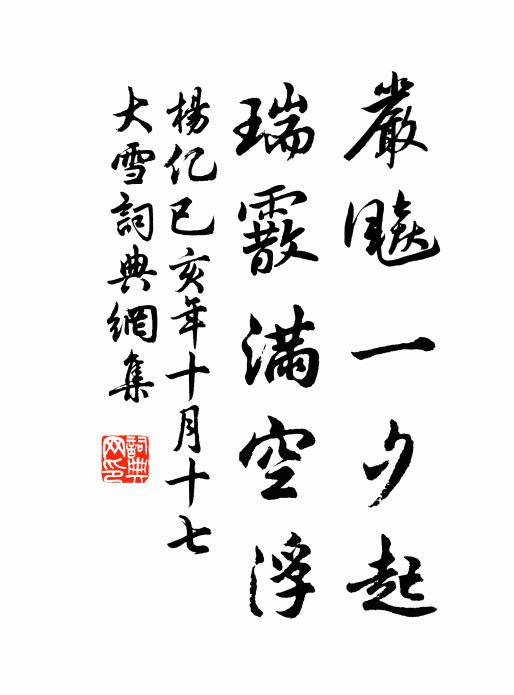 嚴飈一夕起
瑞霰滿空浮
楊億己亥年十月十七
大雪詞典網集
詞典网印